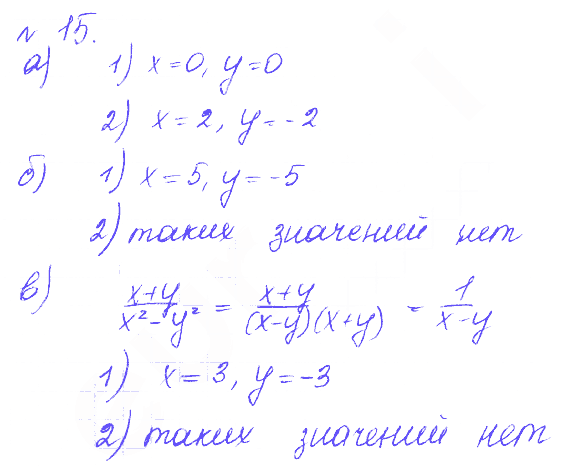 № 15.
а) 1) x=0, y=0
2) x=2, y=-2
б) 1) x=5, y=-5
2) таких значений нет
в) \frac{x+y}{x²-y²} = \frac{x+y}{(x-y)(x+y)} = \frac{1}{x-y}
1) x=3, y=-3
2) таких значений нет